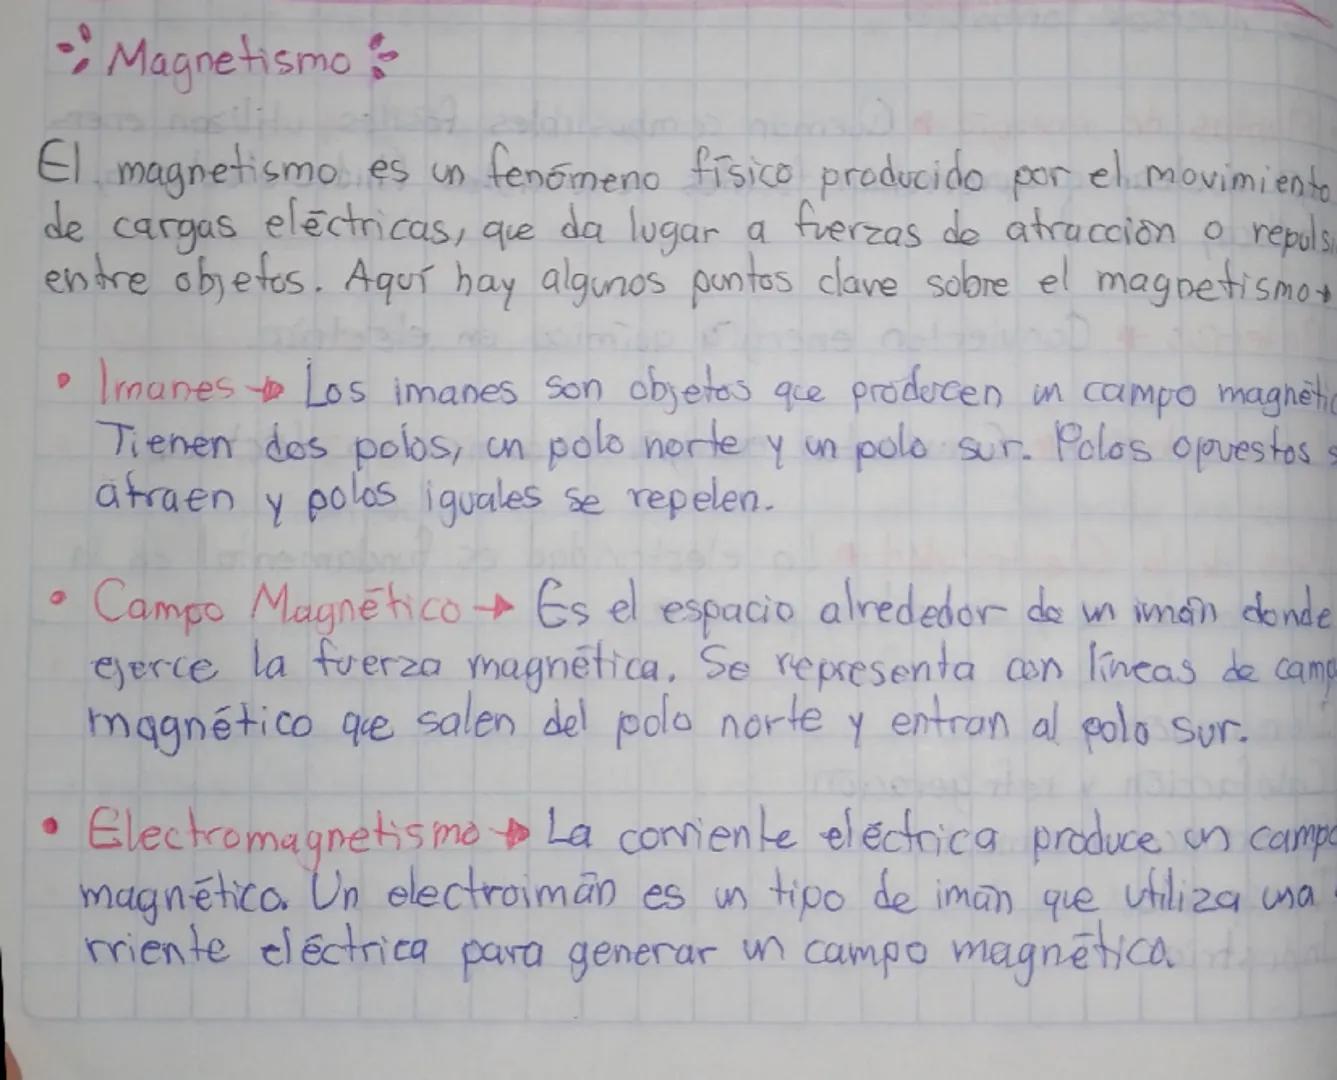 Magnetismo
El magnetismo es un fenómeno físico producido por el movimiento
de cargas eléctricas, que da lugar a fuerzas de atracción o repuls
entre objetos. Aquí hay algunos puntos clave sobre el magnetismo→
• Imanes → Los imanes son objetos que producen un campo magnétic
Tienen dos polos, un polo norte y un polo sur. Polos opuestos s
atraen y polos iguales se repelen.
• Campo Magnético → Es el espacio alrededor de un imán donde
ejerce la fuerza magnética. Se representa con líneas de camp
magnético que salen del polo norte y entran al polo sur.
• Electromagnetismo → La corriente eléctrica produce un campo
magnético. Un electroimán es un tipo de imán que utiliza una
rriente eléctrica para generar un campo magnético.